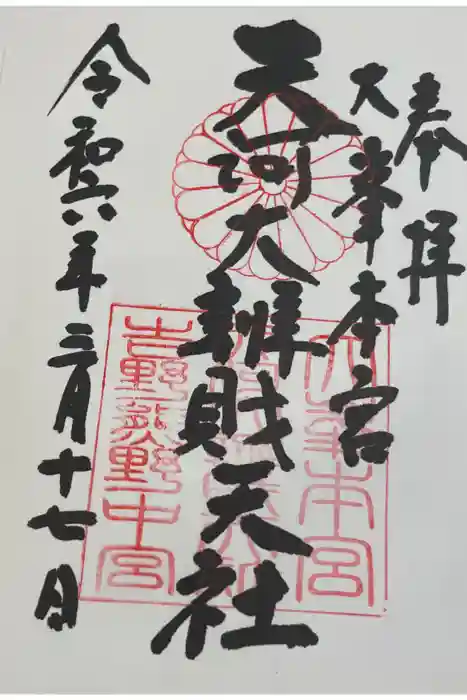 奉拝
大峯本宮
天河大辨財天社
令和六年三月十七日
大峯本宮
吉野熊野中宮